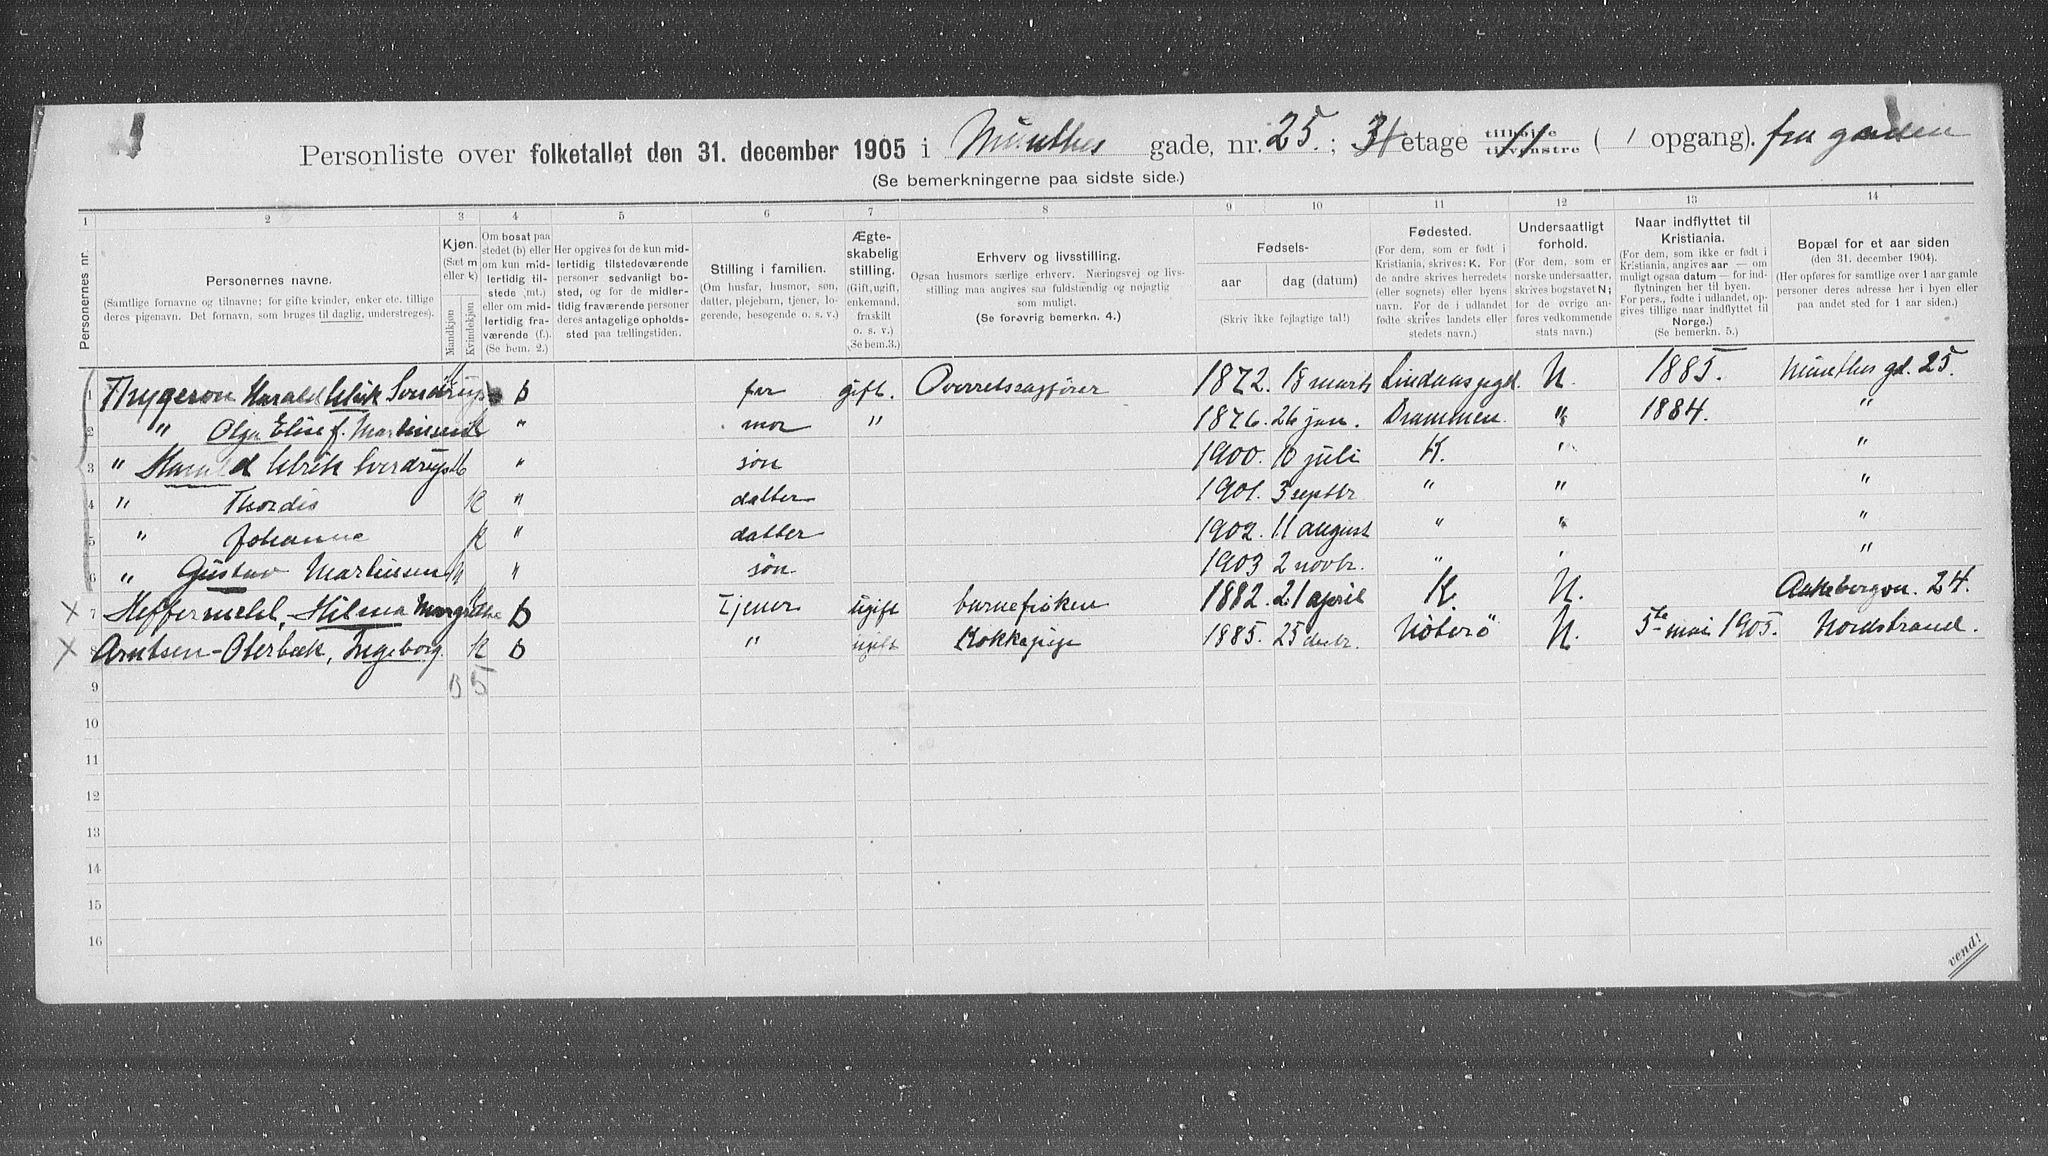 Personliste over folketallet den 31. december 1905 i Munthes gade, nr. 25. ; 3 etage tilhøjre tilvenstre ( 1 opgang). fra gaden
(Se bemerkningerne paa sidste side.)
1 2 3 4 5 6 7 8 9 10 11 12 13 14
Personernes nr.
Personernes navne.
(Samtlige fornavne og tilnavne; for gifte kvinder, enker etc. tillige
deres pigenavn. Det fornavn, som bruges til daglig, understreges).
Kjøn.
(Sæt m
eller k)
Mandkjøn
Kvindekjøn
Om bosat paa
stedet (b) eller
om kun mid-
lertidig til-
stede (mt.)
eller om mid-
lertidig fra-
værende (f.).
(Se bem. 2.)
Her opgives for de kun mid-
lertidig tilstedeværende
personer sedvanlig bo-
sted, og for de midler-
tidig fraværende personer
deres antagelige opholds-
sted paa tællingstiden.
Stilling i familien.
(Om husfar, husmor, søn,
datter, plejebarn, tjener, lo-
gerende, besøgende o. s. v.)
Ægte-
skabelig
stilling.
(Gift, ugift,
enkemand,
fraskilt
o. s. v.)
(Se bem.3.)
Erhverv og livsstilling.
Ogsaa husmors særlige erhverv. Næringsvej og livs-
stilling maa angives saa fuldstændig og nøjagtig
som muligt.
(Se forøvrig bemerkn. 4.)
Fødsels-
aar
dag (datum)
(Skriv ikke fejlagtige tal!)
Fødested.
(For dem, som er født i
Kristiania, skrives: K. For
de andre skrives herredets
(eller sognets) eller byens
navn. For de i udlandet
fødte skrives landets eller
stedets navn.)
Undersaatligt
forhold.
(For dem, som er
norske undersaatter,
skrives bogstavet N;
for de øvrige an-
føres vedkommende
stats navn.)
Naar indflyttet til
Kristiania.
(For dem, som ikke er født i
Kristiania, angives aar — om
muligt ogsaa datum — for ind-
flytningen her til byen.
For pers., fødte i udlandet, op-
gives tillige naar indflyttet til
Norge.)
(Se bemerkn. 5.)
Bopæl for et aar siden
(den 31. december 1904).
(Her opføres for samtlige over 1 aar gamle
personer deres adresse her i byen eller
paa andet sted for 1 aar siden.)
1 Thygeson Harald Ulrik Sverdrup b far gift. Overretssagfører 1872. 18 marts Lindaas pgd. N. 1885. Munthes gd. 25.
2 " Olga Elise f. Martinsen k " mor " 1876. 26 jan. Drammen. " 1884. "
3 " Harald Ulrik Sverdrup " søn 1900. 10 juli K. " "
4 " Thordis k " datter 1901. 3 septbr " " "
5 " Johanne k " datter 1902. 11 august " " "
6 " Gustav Martinsen " søn. 1903 2 novbr. " " "
X 7 Heffermehl, Hilma Margrethe b Tjener ugift barnefrøken 1882. 21 april K. N. Aakebergvn. 24.
X 8 Arntsen-Oterbæk, Ingeborg. k b " ugift Kokkepige 1885. 25 decbr. Nøterø N. 5te mai 1905. Nordstrand.
9 3 5
10
11
12
13
14
15
16
vend!